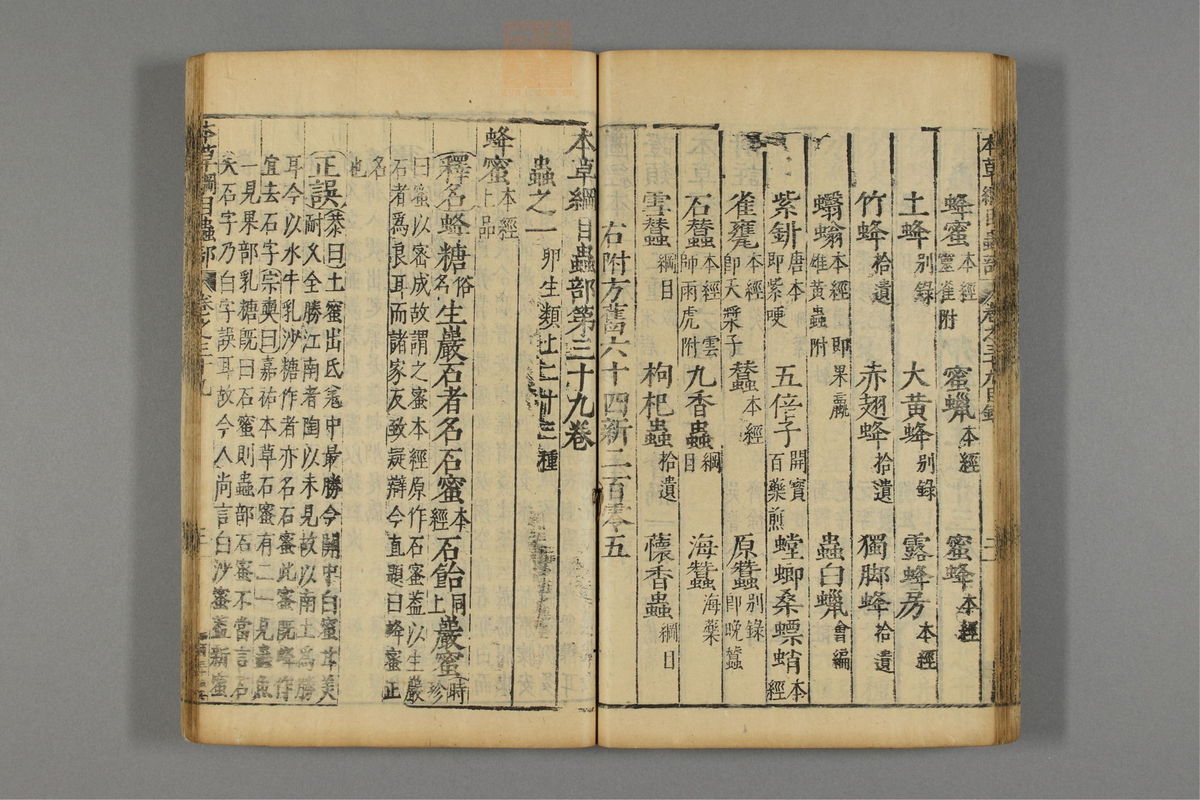 本草綱目蟲部 卷之三十九目錄
蜂蜜本經靈雀附 蜜蠟本經 蜜蜂本經
土蜂別錄 大黃蜂別錄 露蜂房本經
竹蜂拾遺 赤翅蜂拾遺 獨脚蜂拾遺
蠮螉本經即果蠃雄黃蟲附 蟲白蠟會編
紫鉚唐本即紫哽 五倍子開寶百藥煎 螳螂桑螵蛸本經
雀甕本經即天漿子 蠶本經 原蠶別錄即晚蠶
石蠶本經雲師雨虎附 九香蟲綱目 海蠶海藥
雪蠶綱目 枸杷蟲拾遺 蘹香蟲綱目
右附方舊六十四新二百零五
本草綱目蟲部第三十九卷
蟲之一 卵生類上二十三種
蜂蜜本經上品
釋名蜂糖俗名生巖石者名石蜜本經石飴同上巖蜜時珍
曰蜜以密成故謂之蜜本經原作石蜜蓋以生巖
石者為良耳而諸家反致疑辯今直題曰蜂蜜正
名也
正誤恭曰土蜜出氐羌中最勝今關中白蜜甘美
耐久全勝江南者陶以未見故以南土為勝
耳今以水牛乳沙糖作者亦名石蜜此蜜既蜂作
宜去石字宗奭曰嘉祐本草石蜜有二一見蟲魚
一見果部乳糖既曰石蜜則蟲部石蜜不當言石
矣石字乃白字誤耳故今人尚言白沙蜜蓋新蜜
本草綱目蟲部 卷之三十九